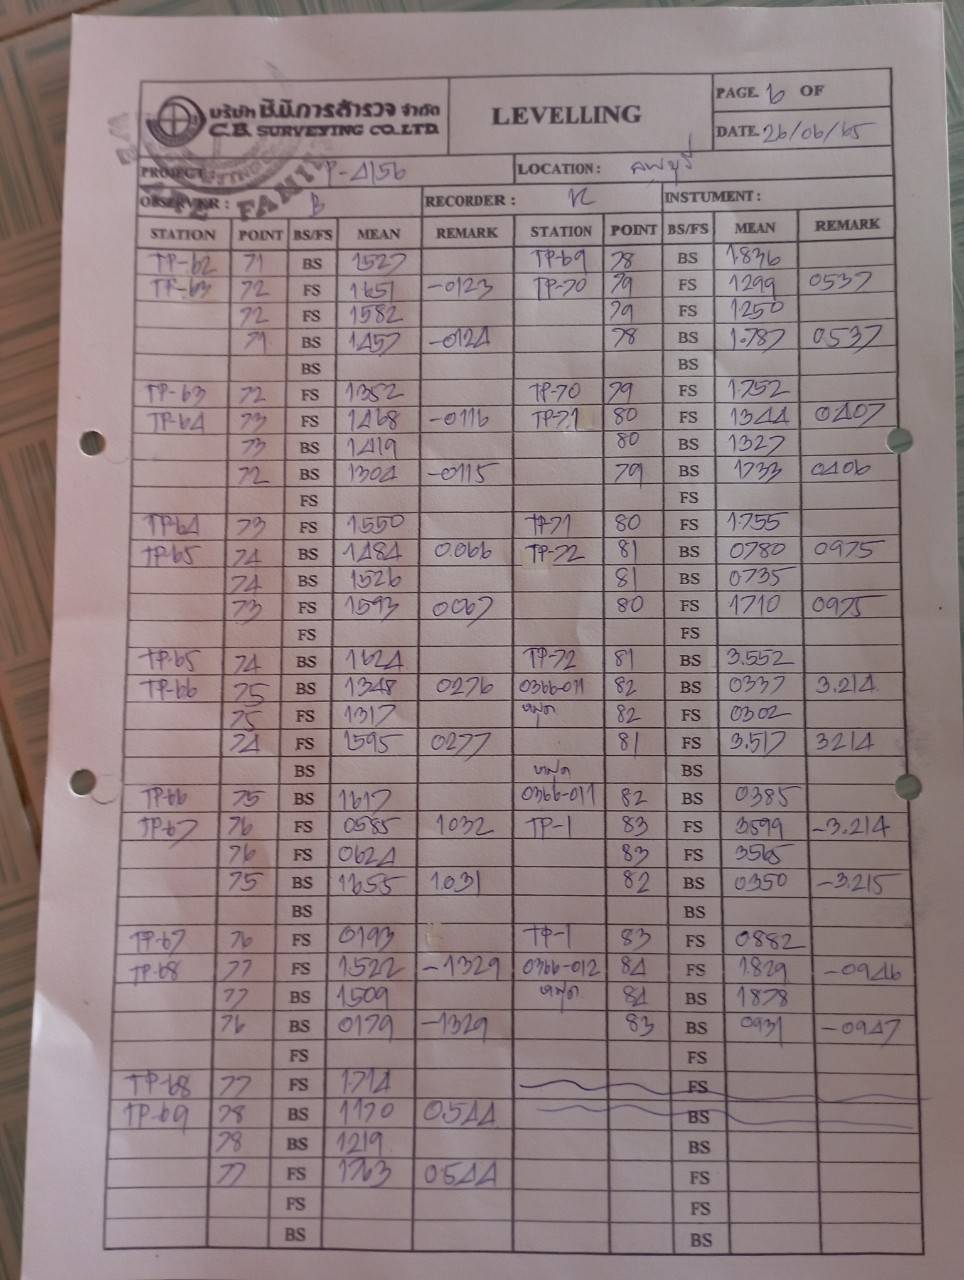 บริษัท ซี.บี.การสำรวจ จำกัด
C.B. SURVEYING CO.,LTD.
LEVELLING
PAGE 6 OF
DATE 26/06/65
PROJECT : P-4156
LOCATION : ลพบุรี
OBSERVER : B
RECORDER : K
INSTUMENT :
STATION POINT BS/FS MEAN REMARK STATION POINT BS/FS MEAN REMARK
TP-62 71 BS 1527 TP-69 78 BS 1.836
TP-63 72 FS 1651 -0123 TP-70 79 FS 1299 0537
72 FS 1582 79 FS 1250
71 BS 1457 -0124 78 BS 1.787 0.537
BS BS
TP-63 72 FS 1352 TP-70 79 FS 1.752
TP-64 73 FS 1468 -0116 TP-71 80 FS 1344 0407
73 BS 1419 80 BS 1327
72 BS 1304 -0115 79 BS 1733 0406
FS FS
TP-64 73 FS 1550 TP-71 80 FS 1.755
TP-65 74 BS 1484 0.066 TP-72 81 BS 0780 0975
74 BS 1526 81 BS 0735
73 FS 1593 0067 80 FS 1710 0975
FS FS
TP-65 74 BS 1624 TP-72 81 BS 3.552
TP-66 75 BS 1348 0276 0366-011 82 BS 0337 3.214
75 FS 1317 หมุด 82 FS 0302
74 FS 1595 0277 81 FS 3.517 3214
BS หมุด BS
TP-66 75 BS 1617 0366-011 82 BS 0385
TP-67 76 FS 0585 1032 TP-1 83 FS 3599 -3.214
76 FS 0624 83 FS 3565
75 BS 1655 1.031 82 BS 0350 -3.215
BS BS
TP-67 76 FS 0193 TP-1 83 FS 0882
TP-68 77 FS 1522 -1329 0366-012 84 FS 1.829 -0946
77 BS 1509 หมุด 84 BS 1878
76 BS 0179 -1329 83 BS 0931 -0947
FS FS
TP-68 77 FS 1.714 FS
TP-69 78 BS 1170 0.544 BS
78 BS 1219 BS
77 FS 1763 0544 FS
FS FS
BS BS